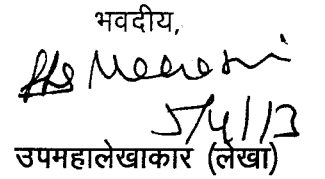 भवदीय,
5/4/13
उपमहालेखाकार (लेखा)